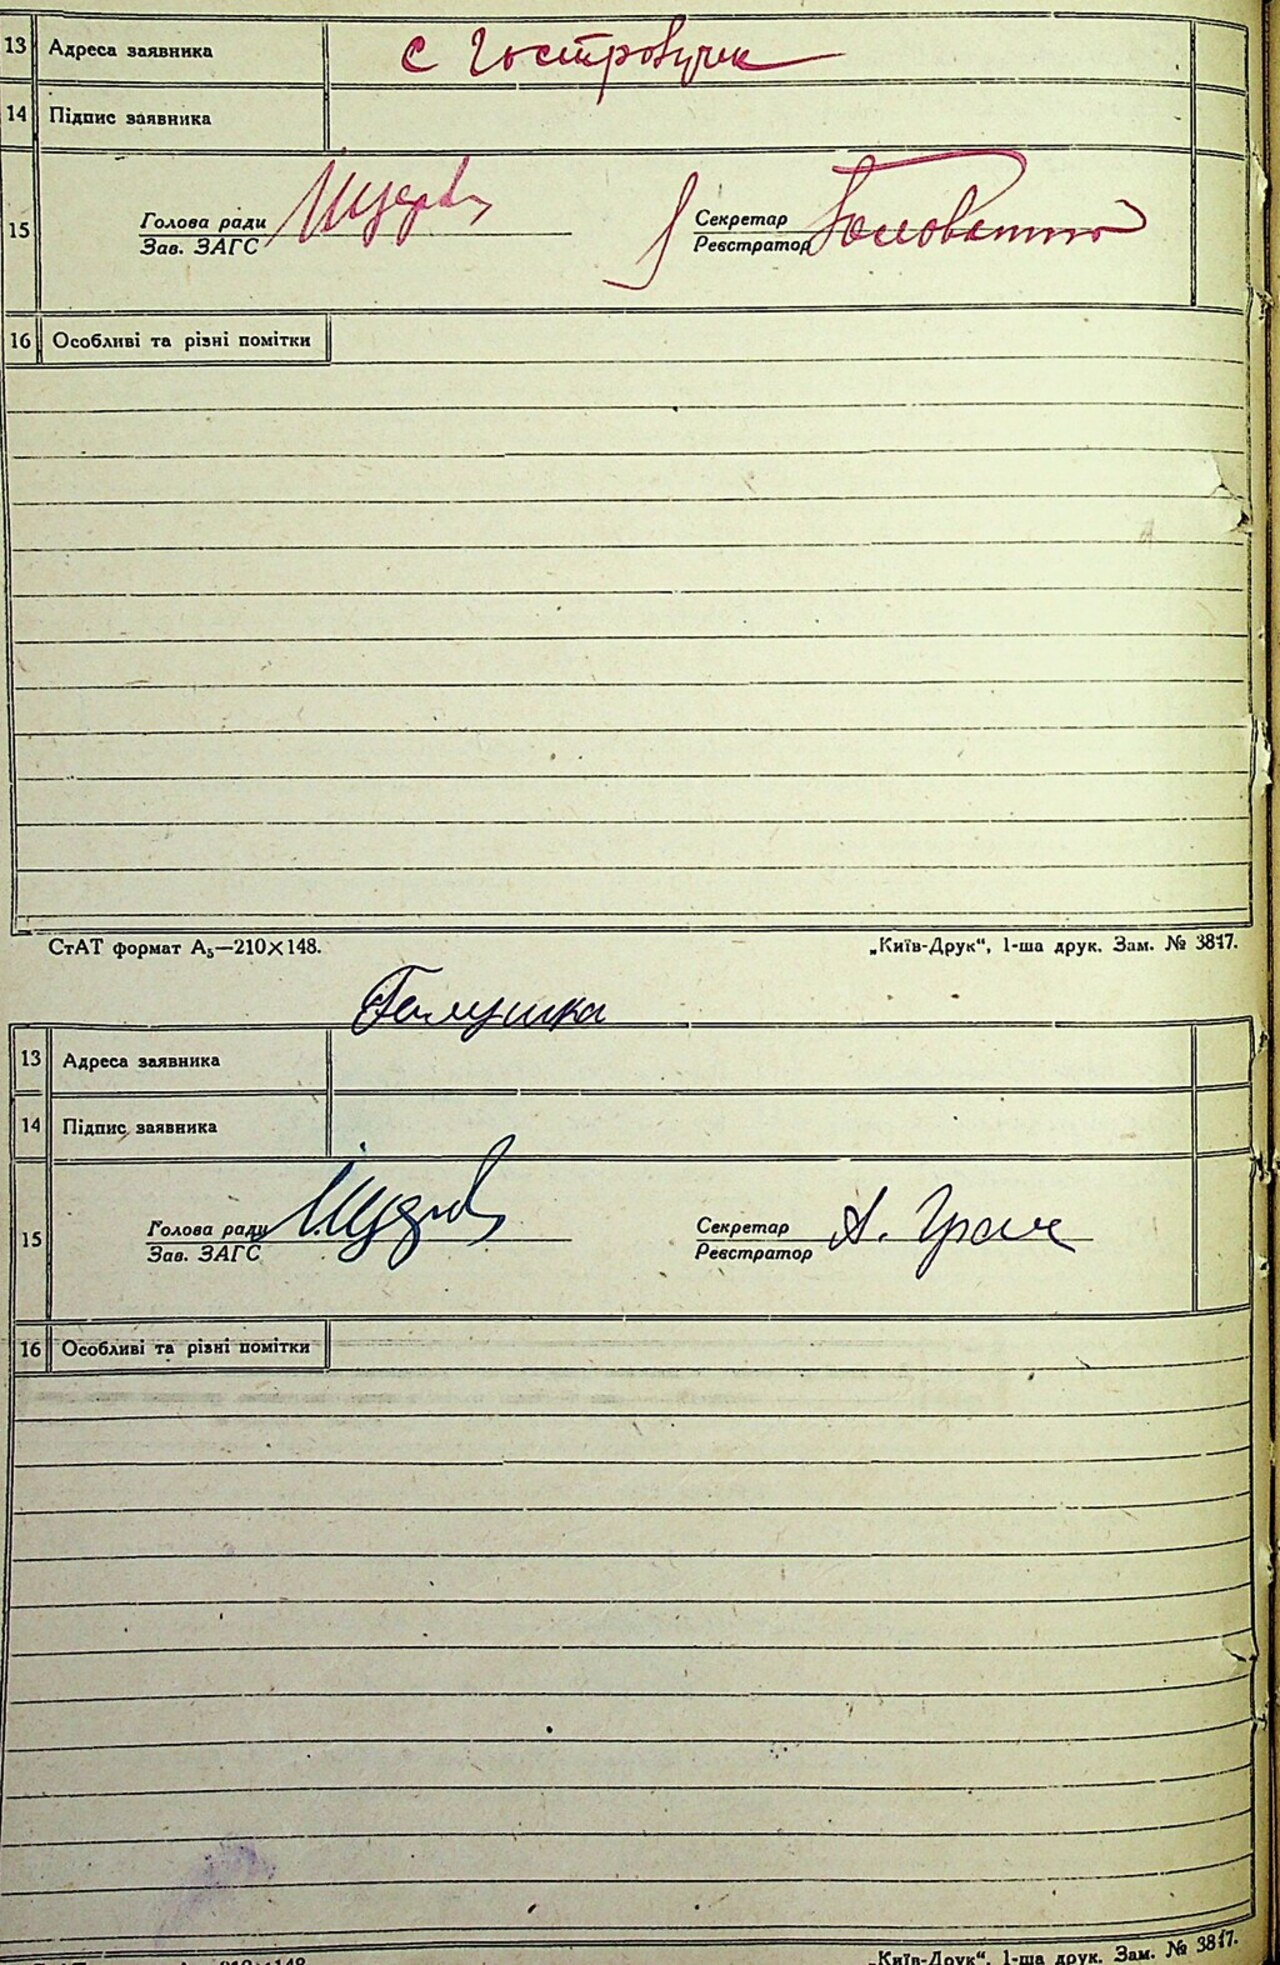 13 Адреса заявника с
14 Підпис заявника
15 Голова ради Секретар
Зав. ЗАГС Реєстратор
16 Особливі та різні помітки
СтАТ формат А₅—210×148. „Київ-Друк“, 1-ша друк. Зам. № 3817.
Галушка
13 Адреса заявника
14 Підпис заявника
15 Голова ради Секретар А. Грач
Зав. ЗАГС Реєстратор
16 Особливі та різні помітки
„Київ-Друк“, 1-ша друк. Зам. № 3817.